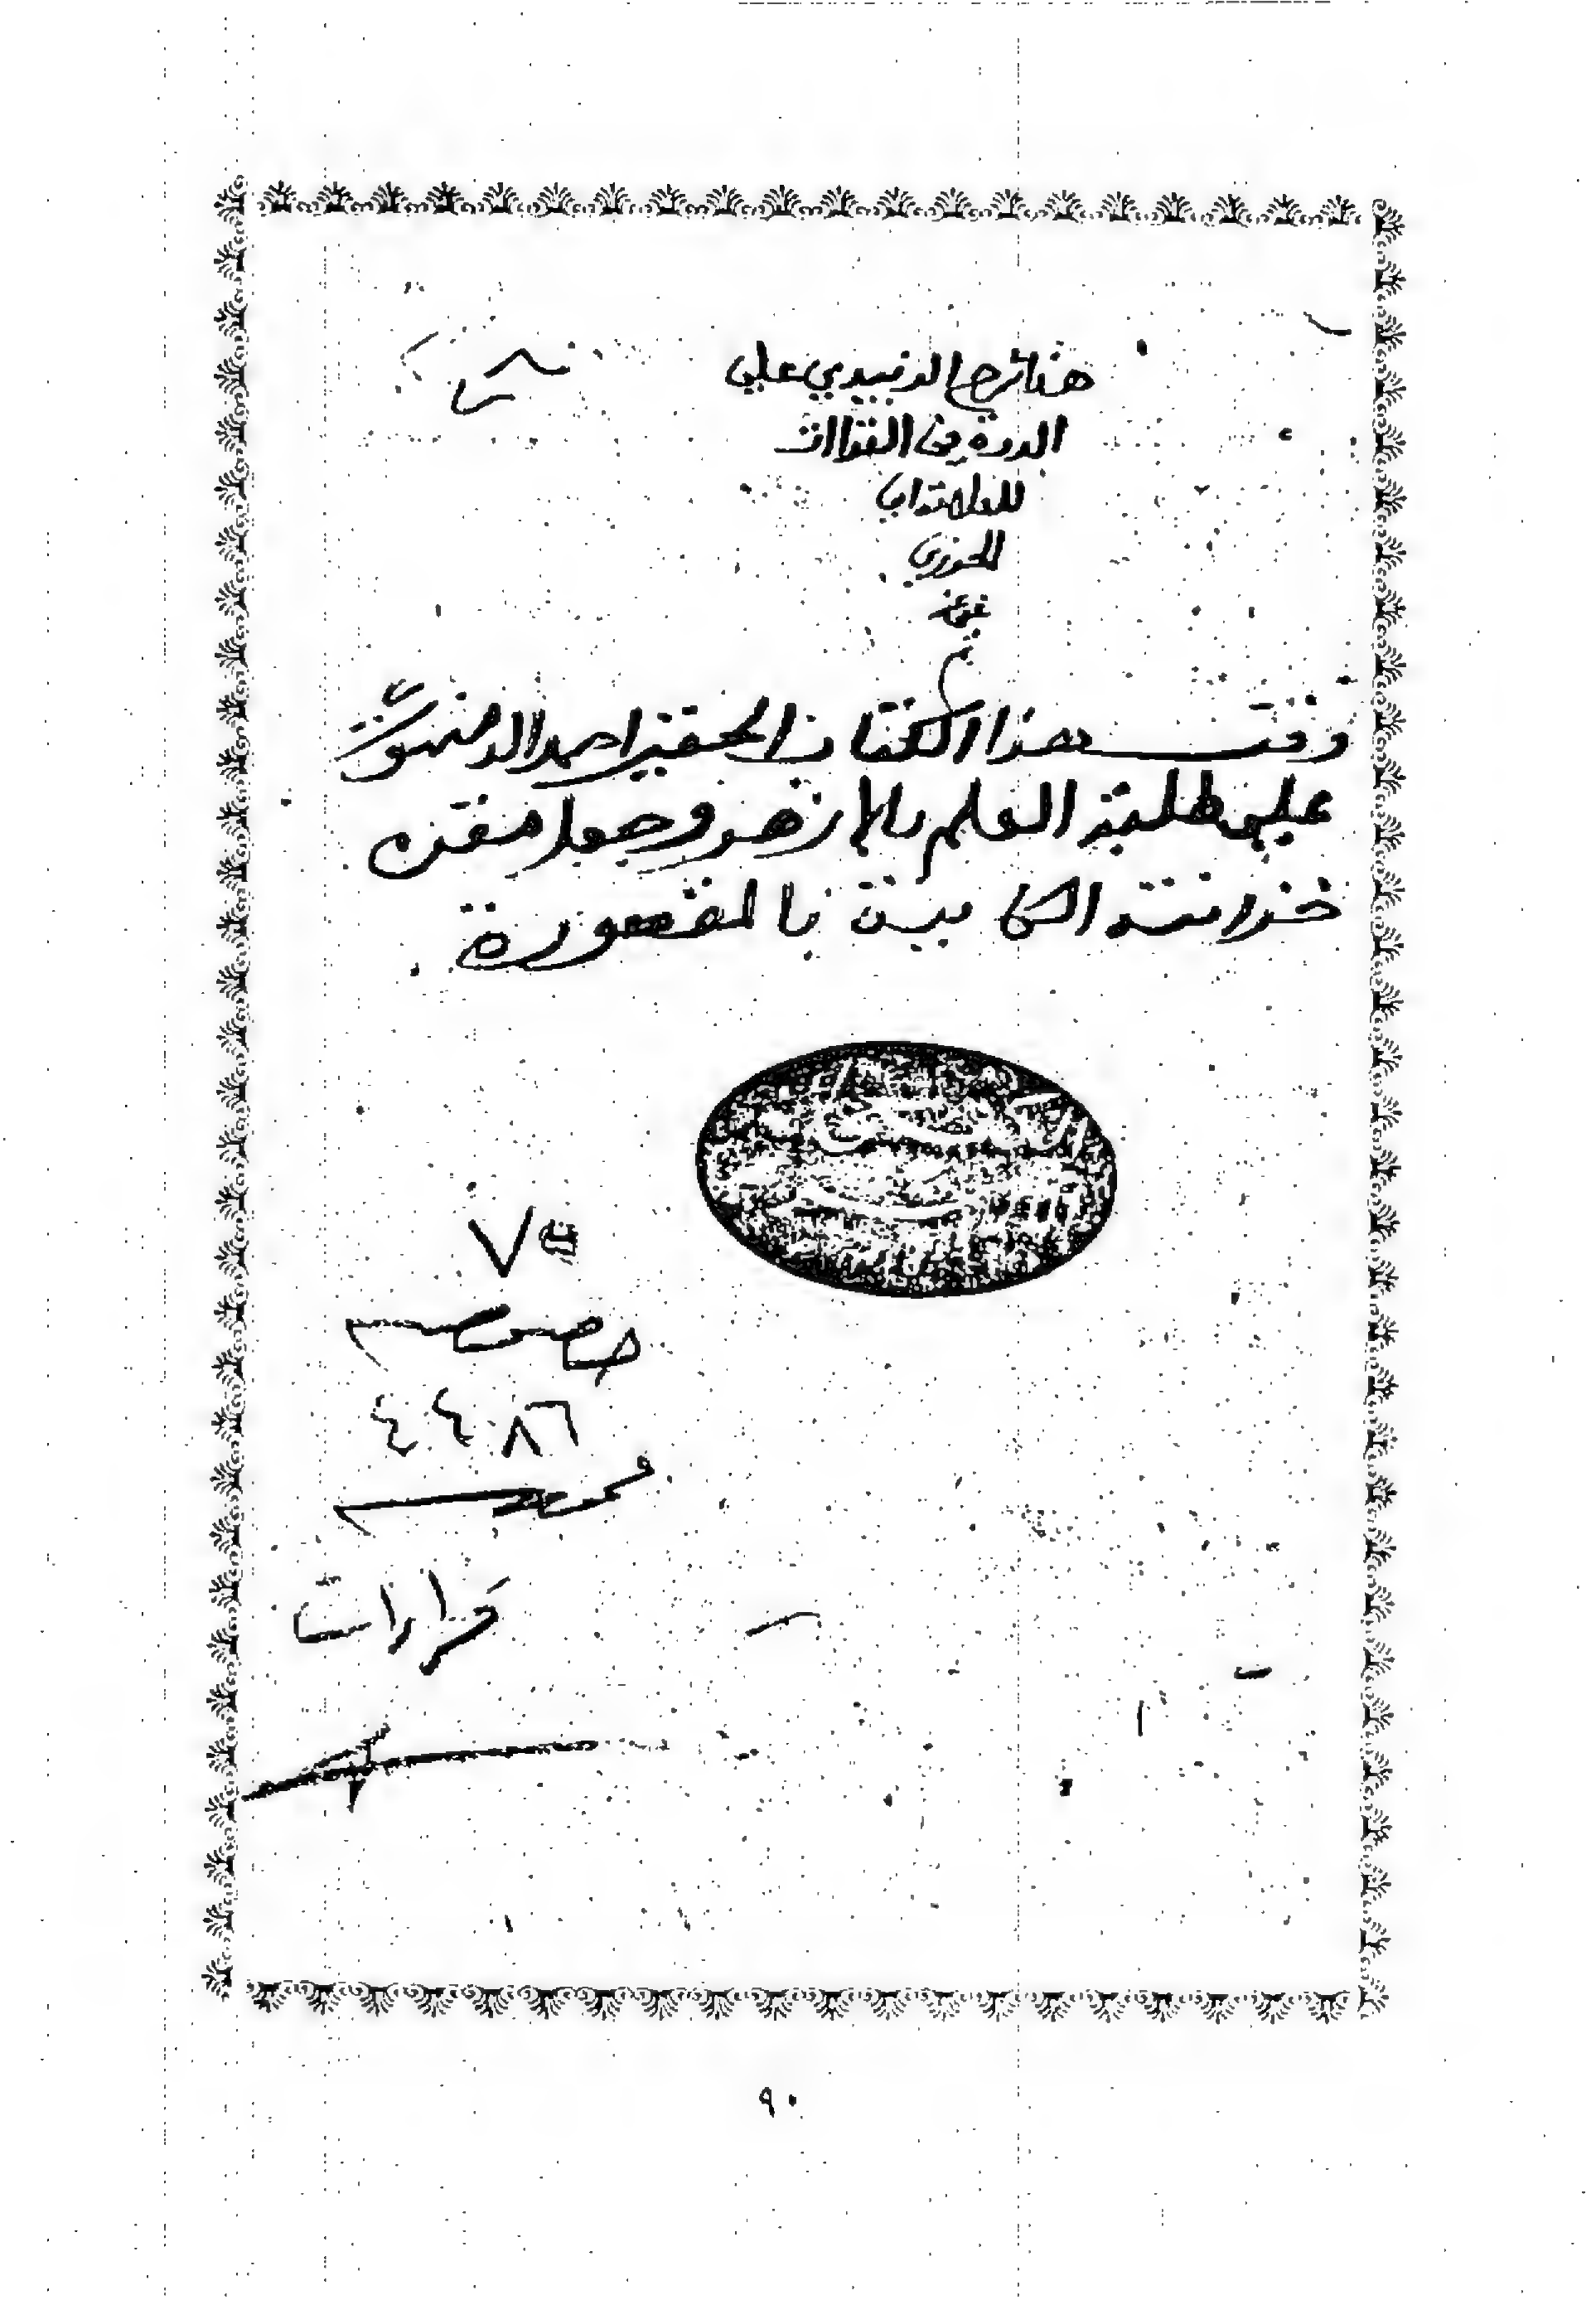 هذا شرح الزبيدي علي
الدرة في القراات
للعلامة ابن
الجزري
وقف هذا الكتاب الحقير احمد الدمنهوري
علي طلبة العلم بالازهر وجعل مقره
خزانته الكاينة بالمقصورة
٧٩
خصوصية
٤٤٨٦
عمومية
قراات
٩٠